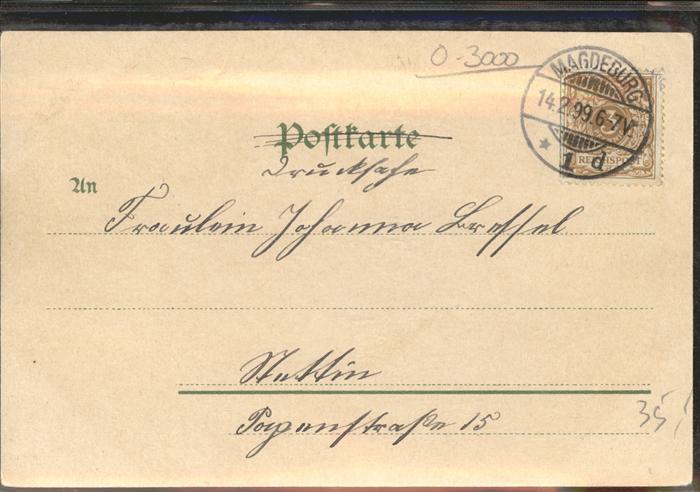 0-3000
MAGDEBURG
14.2.99.6-7V.
* 1 d
3
REICHSPOST
Postkarte
Drucksache
An
Fräulein Johanna Bressel
Stettin
Pagenstraße 15
35,-